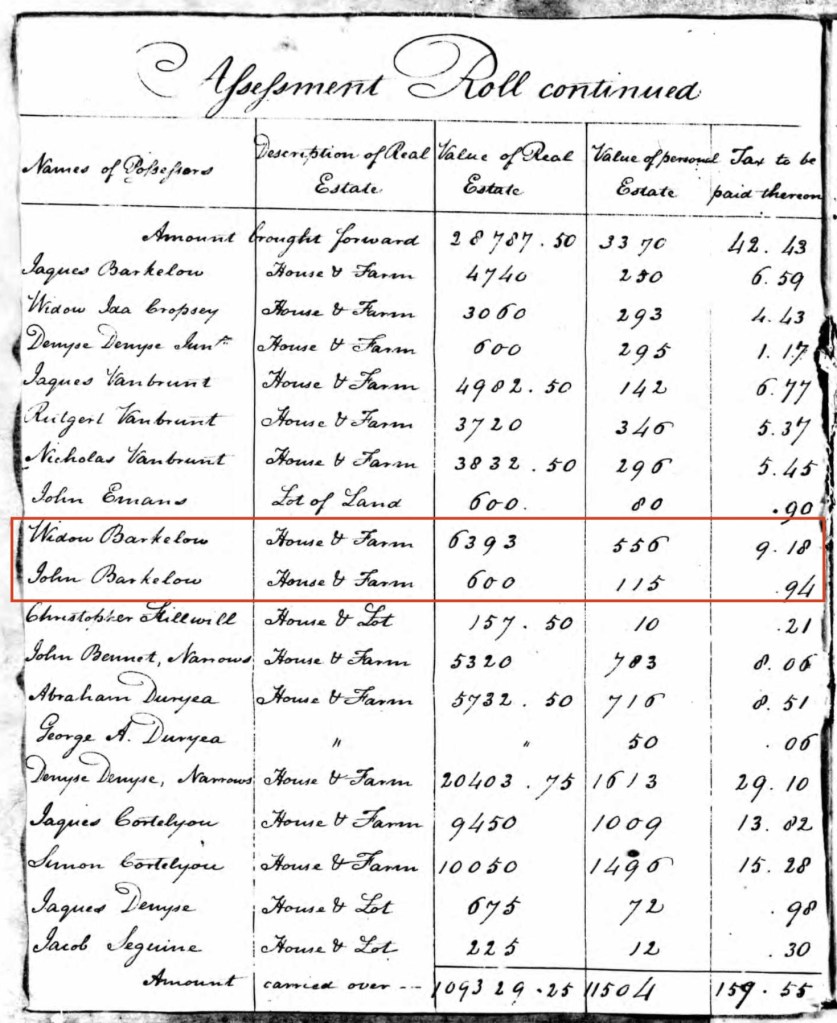 Assessment Roll continued
Names of Possessors Description of Real Estate Value of Real Estate Value of personal Estate Tax to be paid thereon
Amount brought forward 28787.50 3370 42.43
Jaques Barkelow House & Farm 4740 250 6.59
Widow Ida Cropsey House & Farm 3060 293 4.43
Denyse Denyse Junr House & Farm 600 295 1.17
Jaques Vanbrunt House & Farm 4982.50 142 6.77
Rutgert Vanbrunt House & Farm 3720 346 5.37
Nicholas Vanbrunt House & Farm 3832.50 296 5.45
John Emans Lot of Land 600. 80 .90
Widow Barkelow House & Farm 6393 556 9.18
John Barkelow House & Farm 600 115 .94
Christopher Stillwill House & Lot 157.50 10 .21
John Bennet, Narrows House & Farm 5320 783 8.06
Abraham Duryea House & Farm 5732.50 716 8.51
George A. Duryea " " 50 .06
Denyse Denyse, Narrows House & Farm 20403.75 1613 29.10
Jaques Cortelyou House & Farm 9450 1009 13.82
Simon Cortelyou House & Farm 10050 1496 15.28
Jaques Denyse House & Lot 675 72 .98
Jacob Seguine House & Lot 225 12 .30
Amount carried over -- 109329.25 11504 159.55